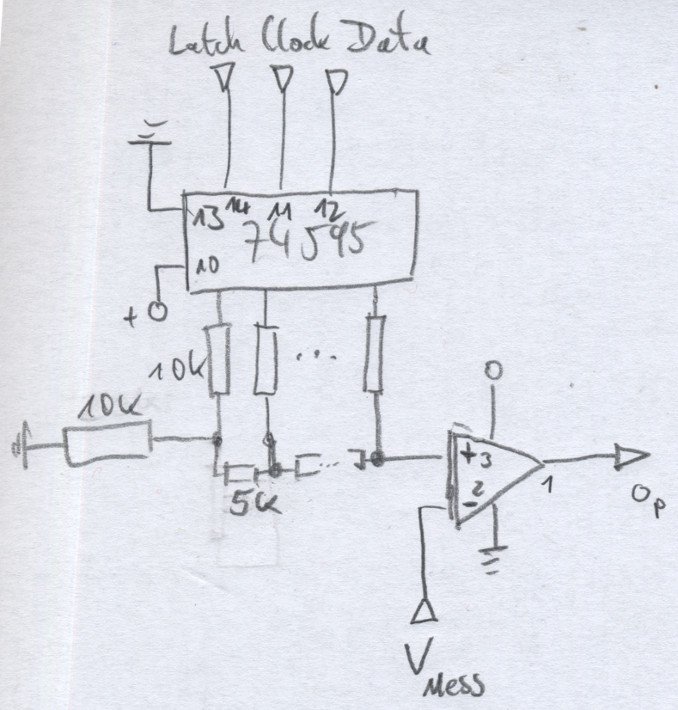 Latch Clock Data
13 14 11 12
74595
10
+
10k
...
10k
0
+3
2
-
1
5k
...
Op
VMess